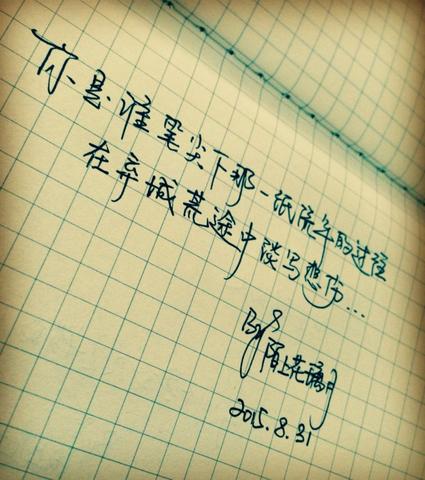 你是谁笔尖下那一纸流年的过往
在弃城荒途中淡写想伤...
By 陌上花璃月
2015.8.31